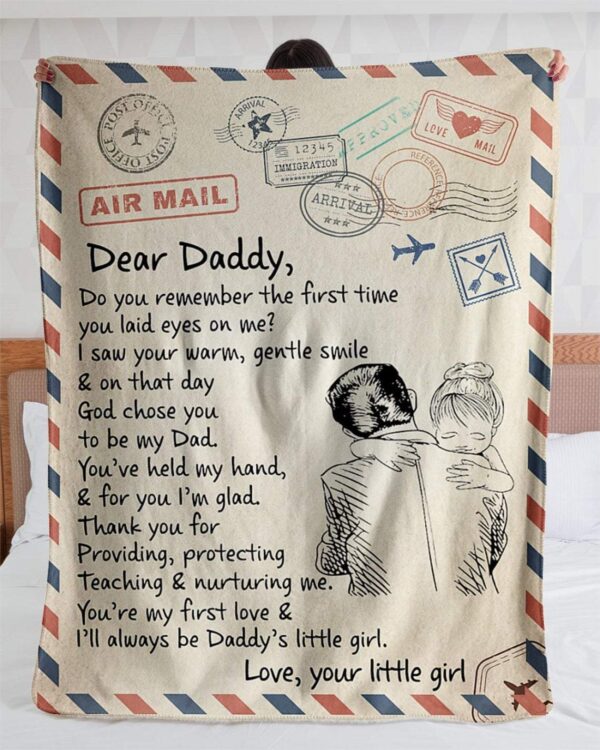 POST OFFICE POST OFFICE
ARRIVAL
1234
12345
IMMIGRATION
APPROVED
LOVE MAIL
ARRIVAL
AIR MAIL
Dear Daddy,
Do you remember the first time
you laid eyes on me?
I saw your warm, gentle smile
& on that day
God chose you
to be my Dad.
You've held my hand,
& for you I'm glad.
Thank you for
Providing, protecting
Teaching & nurturing me.
You're my first love &
I'll always be Daddy's little girl.
Love, your little girl